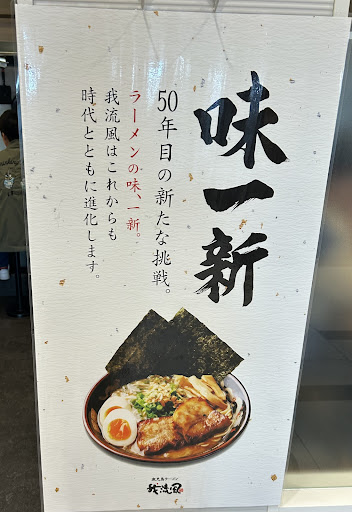 味一新
50年目の新たな挑戦。
ラーメンの味、一新。
我流風はこれからも
時代とともに進化します。
鹿児島ラーメン
我流風